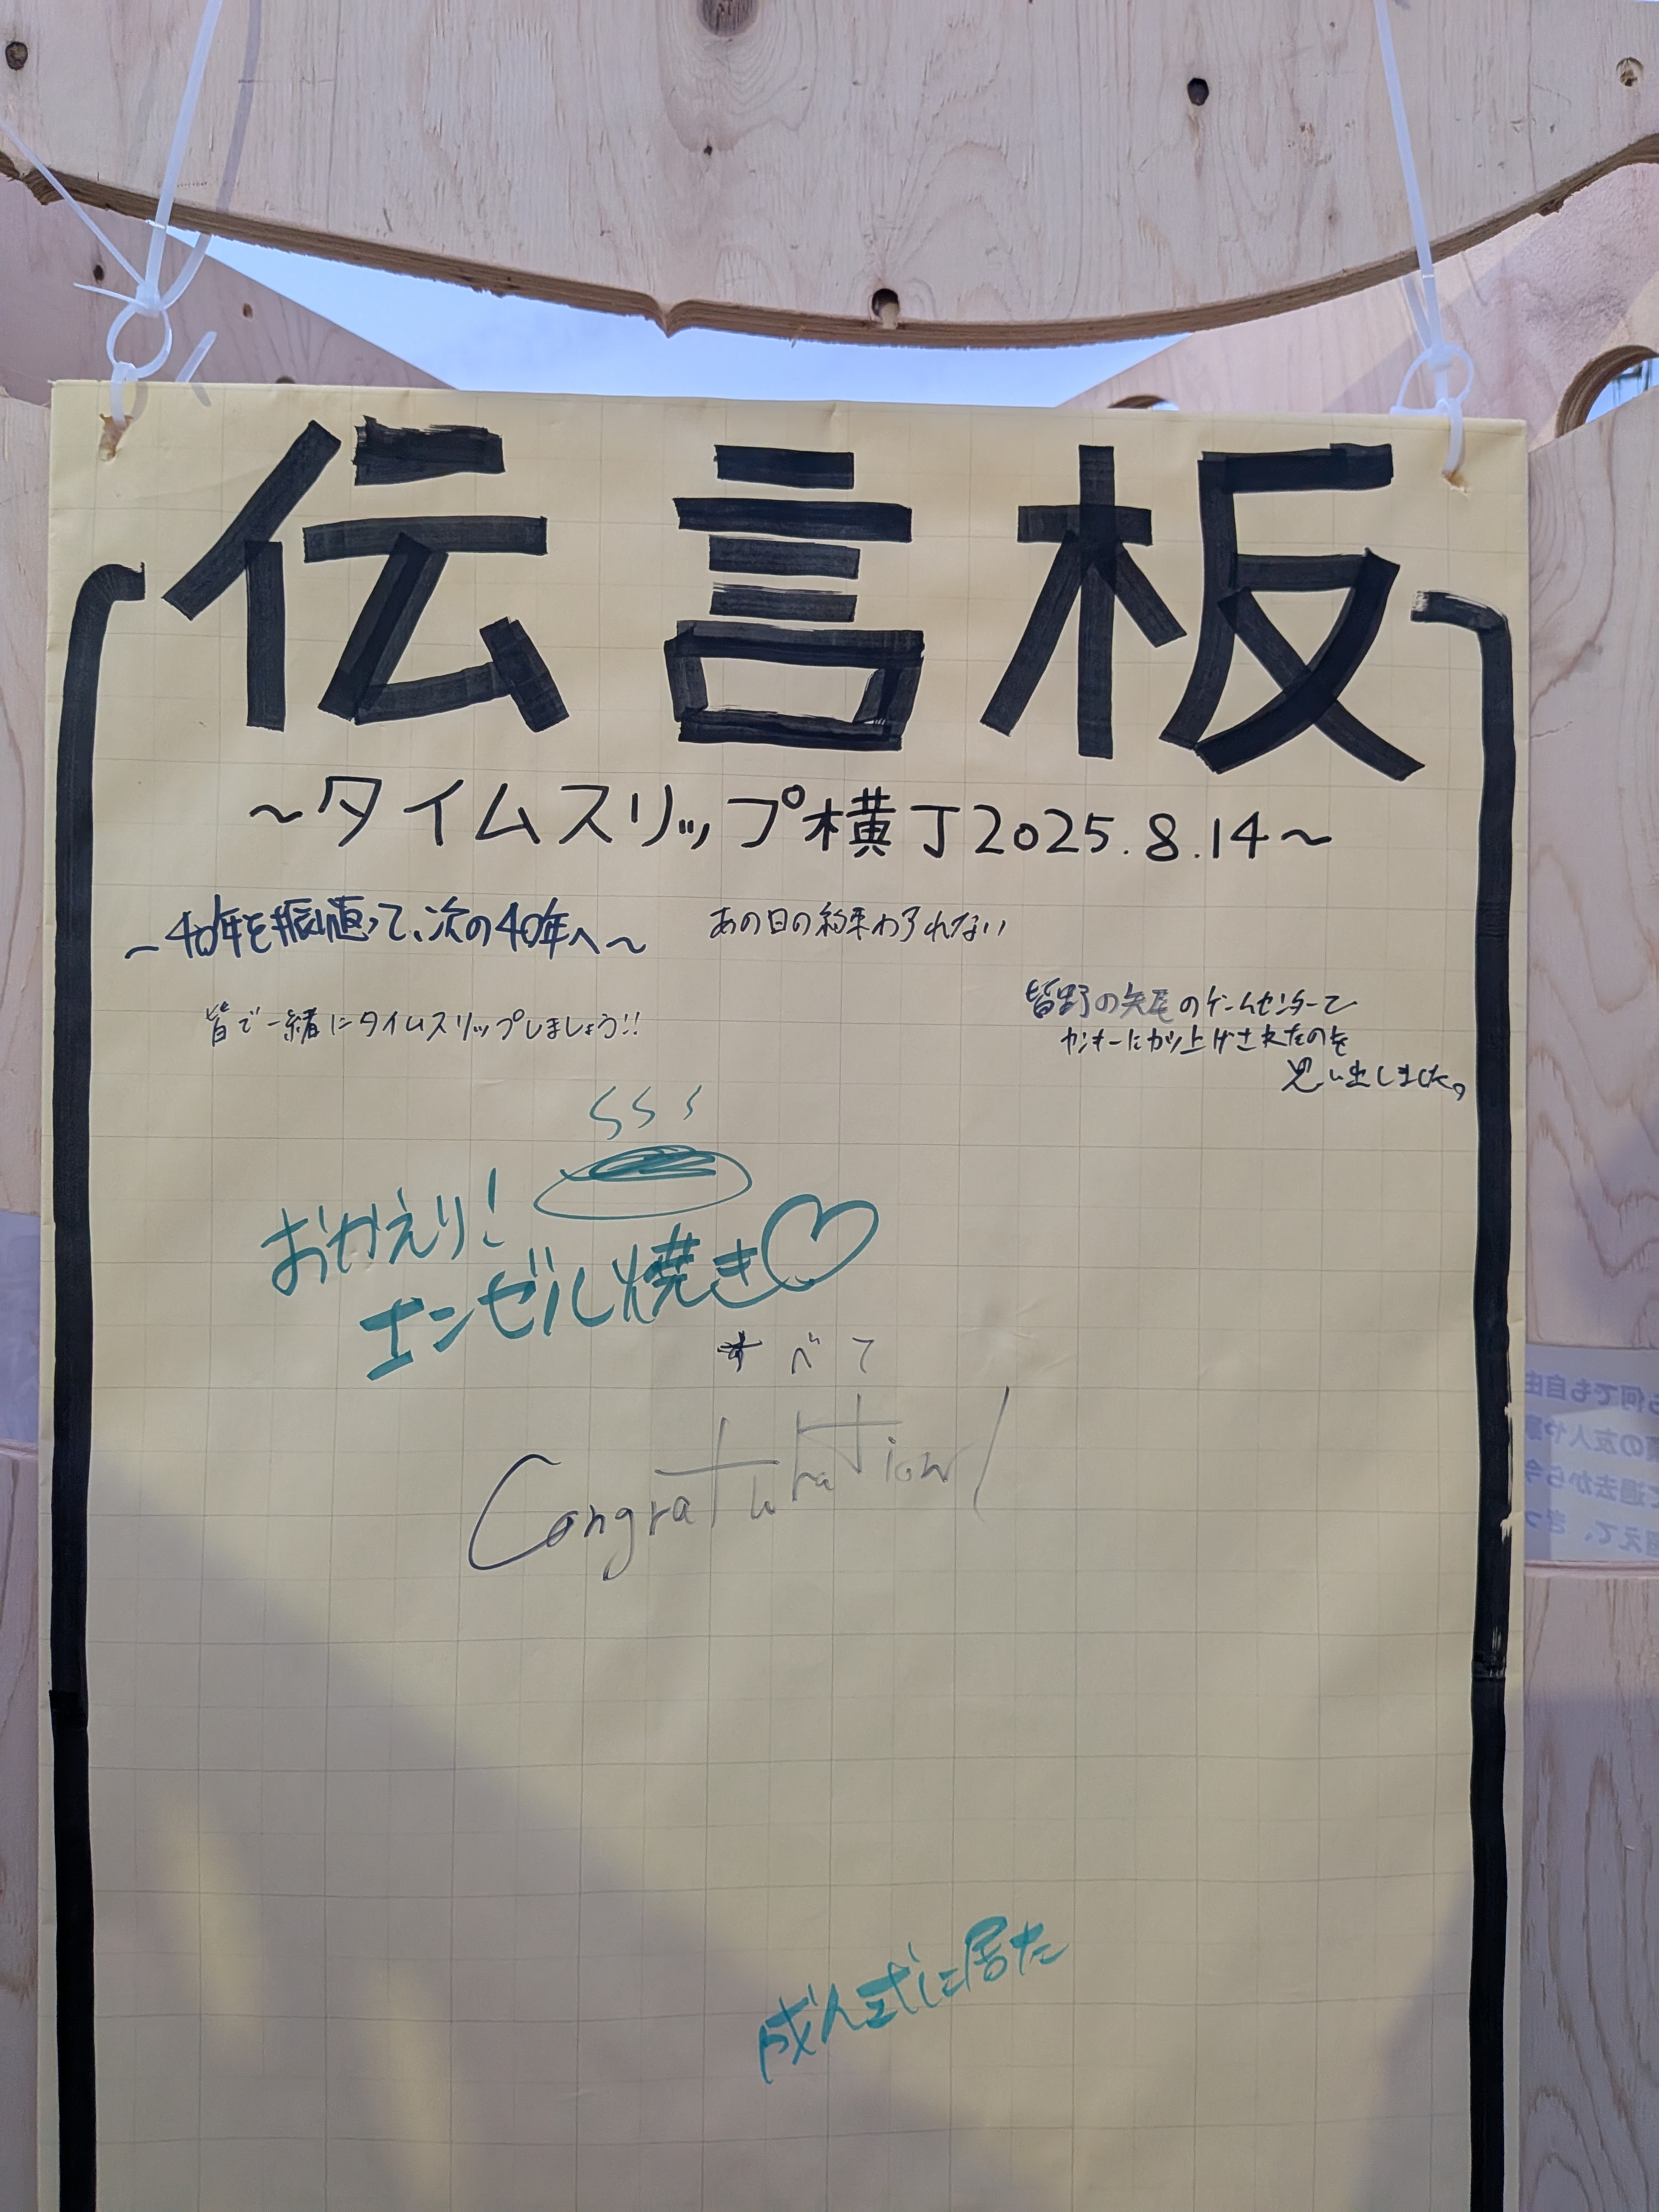 伝言板
～タイムスリップ横丁2025.8.14～
～40年を振り返って、次の40年へ～
あの日の約束わすれない
皆で一緒にタイムスリップしましょう!!
皆野の矢尾のゲームセンターで
ヤンキーにカツ上げされたのを
思い出しました。
おかえり!
エンゼル焼き♡
すべて
Congratulation!
成人式に居た